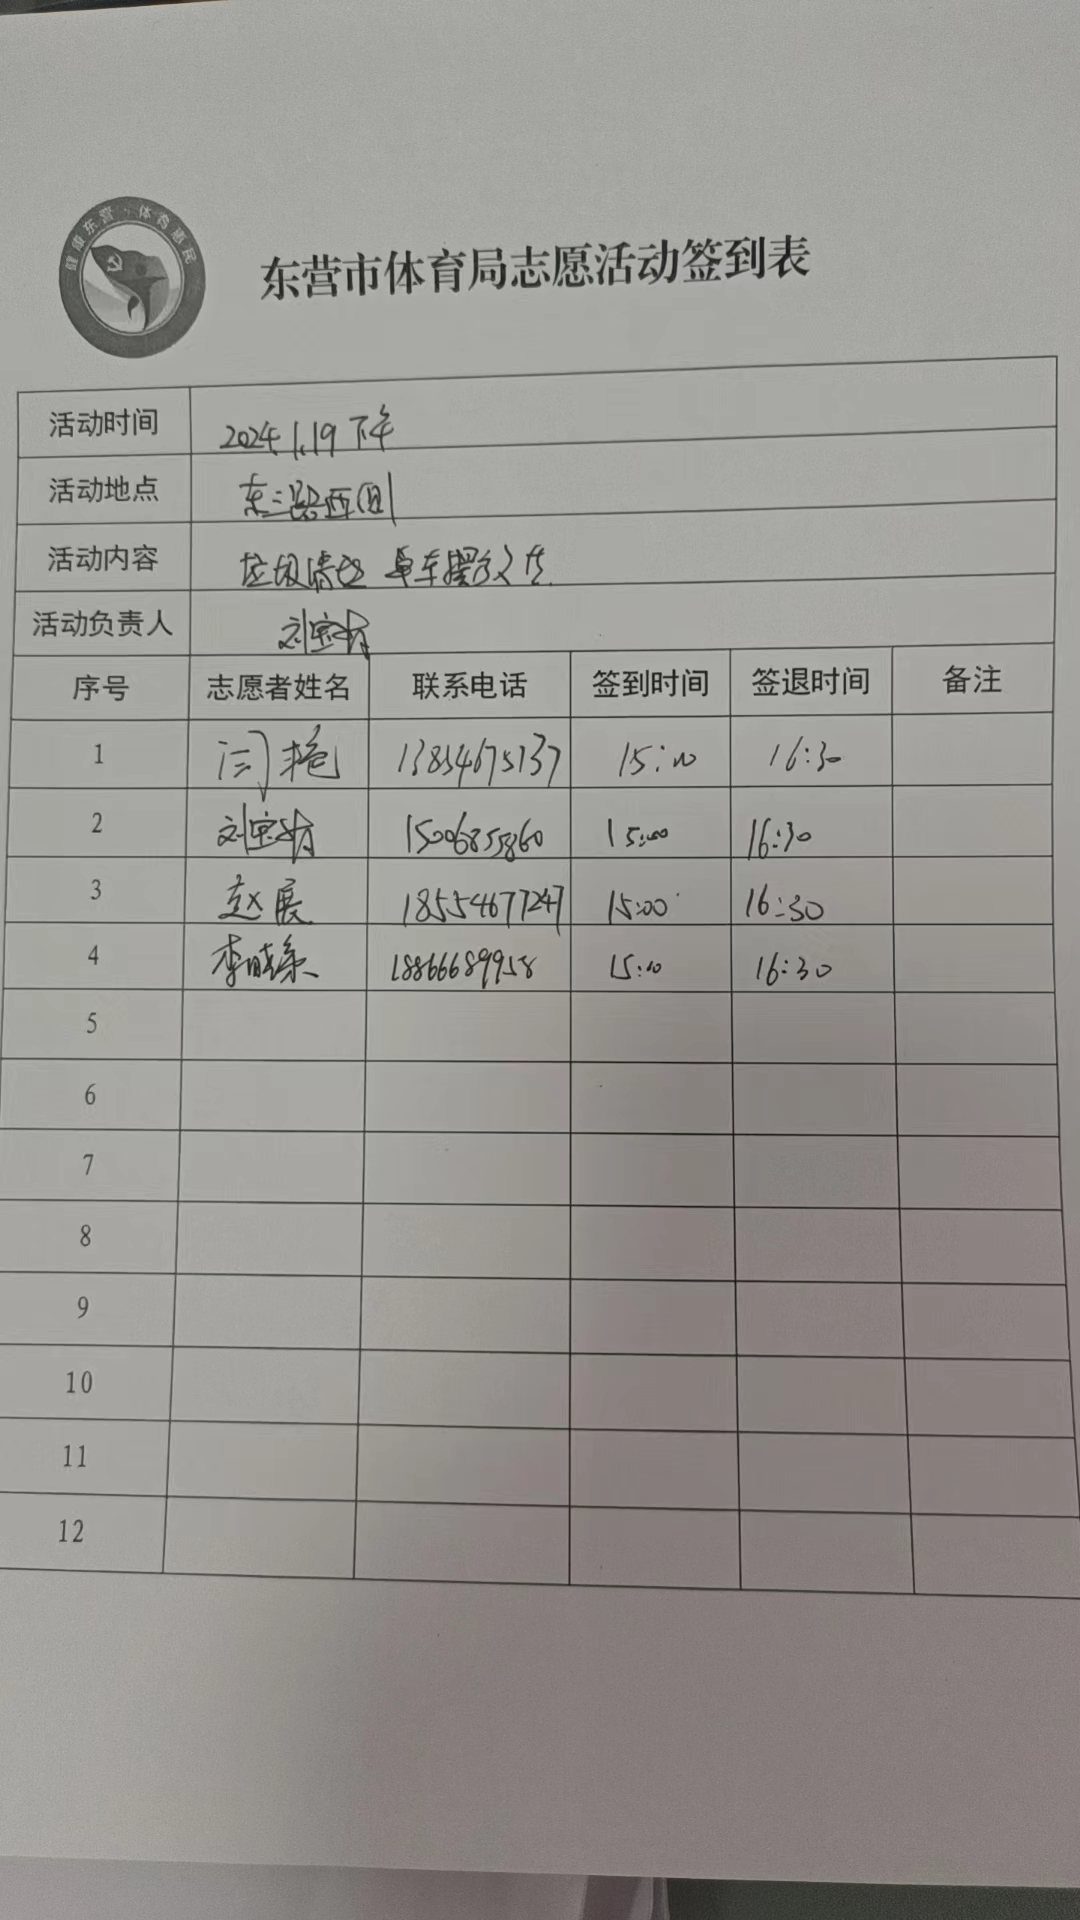 健康东营·体育惠民
东营市体育局志愿活动签到表
活动时间 2024.1.19 下午
活动地点 东三路西侧
活动内容 垃圾清理 单车摆放
活动负责人 刘宝
序号 志愿者姓名 联系电话 签到时间 签退时间 备注
1 闫艳 13854675137 15:00 16:30
2 刘宝 15006855860 15:00 16:30
3 赵展 18554677247 15:00 16:30
4 李晓 18866689958 15:00 16:30
5
6
7
8
9
10
11
12